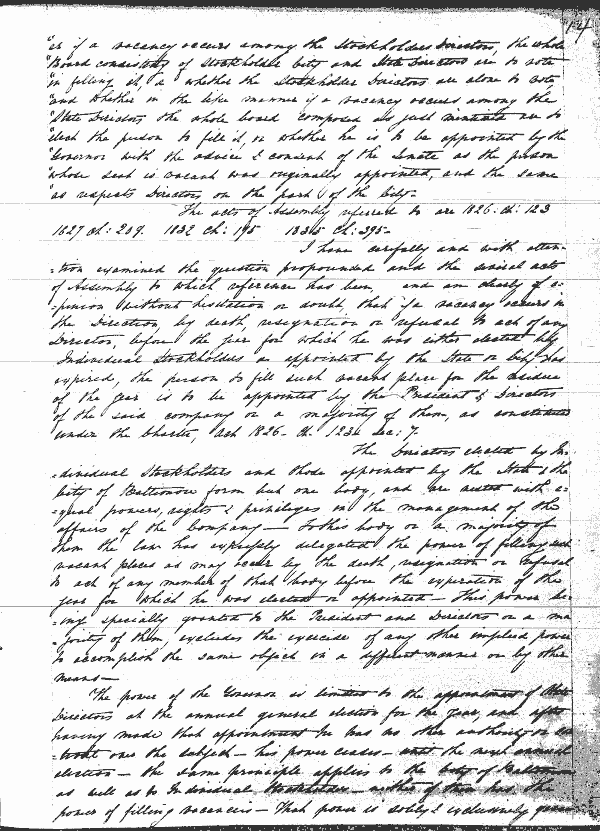 14
"or if a vacancy occurs among the Stockholders Directors, the whole
"Board consisting of Stockholder City and State Directors are to vote
"in filling it, or whether the Stockholder Directors are alone to vote,
"and whether in the like manner if a vacancy occurs among the
"State Directors the whole board composed as just mentioned are to
"elect the person to fill it, or whether he is to be appointed by the
"Governor with the advice & consent of the Senate as the person
"whose seat is vacant was originally appointed, and the same
"as respects Directors on the part of the City-
The acts of Assembly referred to are 1826. ch: 123
1827 ch: 209. 1832 Ch: 195 1835 Ch: 395-
I have carefully and with atten-
-tion examined the question propounded and the several acts
of Assembly to which reference has been, and am clearly of o-
-pinion without hesitation or doubt, that if a vacancy occurs in
the Direction, by death, resignation or refusal to act of any
Director, before the year for which he was either elected by
Individual Stockholders or appointed by the State or City has
expired, the person to fill such vacant place for the residue
of the year is to be appointed by the President & Directors
of the said company or a majority of them, as constituted
under the Charter, Act 1826- ch. 123. Sec: 7.
The Directors elected by In-
-dividual Stockholders and those appointed by the State & the
City of Baltimore form but one body, and are vested with e-
-qual powers, rights & privileges in the management of the
affairs of the Company— To this body or a majority of
them the law has expressly delegated the power of filling such
vacant places as may occur by the death, resignation or refusal
to act of any member of that body before the expiration of the
year for which he was elected or appointed— This power be-
-ing specially granted to the President and Directors or a ma
-jority of them, excludes the exercise of any other implied power
to accomplish the same object in a different manner or by other
means—
The power of the Governor is limited to the appointment of State
Directors at the annual general election for the year, and after
having made that appointment he has no other authority or con
-trol over the subject— his power ceases— until the next annual
election— the same principle applies to the City of Baltimore
as well as to Individual Stockholders— neither of them has the
power of filling vacancies— That power is solely & exclusively given